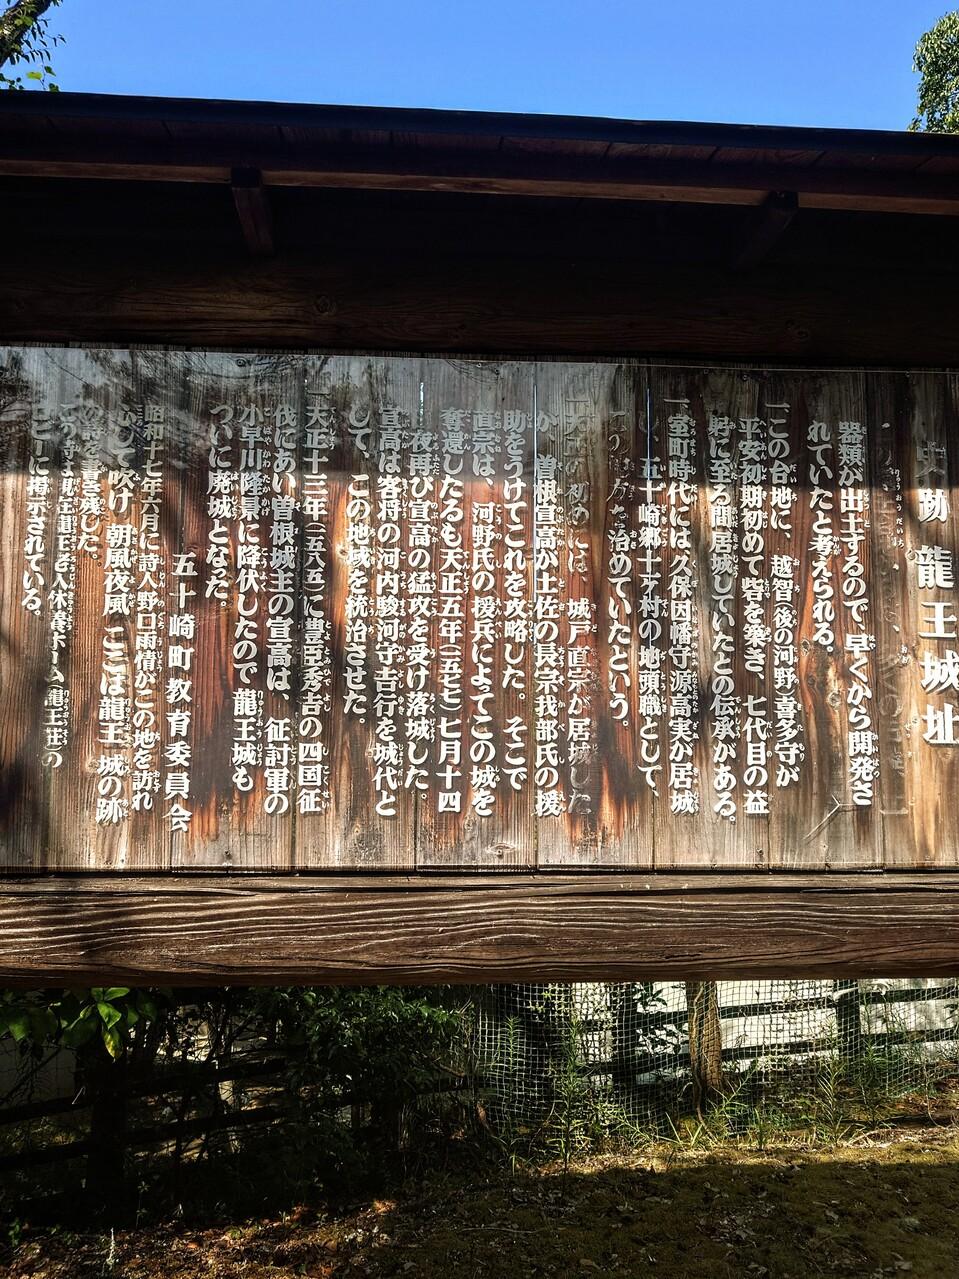 史跡 龍王城址
器類が出土するので、早くから開発さ
れていたと考えられる。
一、この台地に、越智(後の河野)喜多守が
平安初期初めて砦を築き、七代目の益
躬に至る間居城していたとの伝承がある。
一、室町時代には久保因幡守源高実が居城
し、五十崎郷十ヶ村の地頭職として、
治めていたという。
初めには、城戸直宗が居城した
が、曽根宣高が土佐の長宗我部氏の援
助をうけてこれを攻略した。そこで
直宗は、河野氏の援兵によってこの城を
奪還したるも天正五年(一五七七)七月十四
夜再び宣高の猛攻を受け落城した。
宣高は客将の河内駿河守吉行を城代と
して、この地域を統治させた。
一、天正十三年(一五八五)に豊臣秀吉の四国征
伐にあい曽根城主の宣高は、征討軍の
小早川隆景に降伏したので龍王城も
ついに廃城となった。
五十崎町教育委員会
昭和十七年六月に詩人野口雨情がこの地を訪れ
吹け 朝風夜風 ここは龍王 城の跡
書き残した。
ロビーに掲示されている。